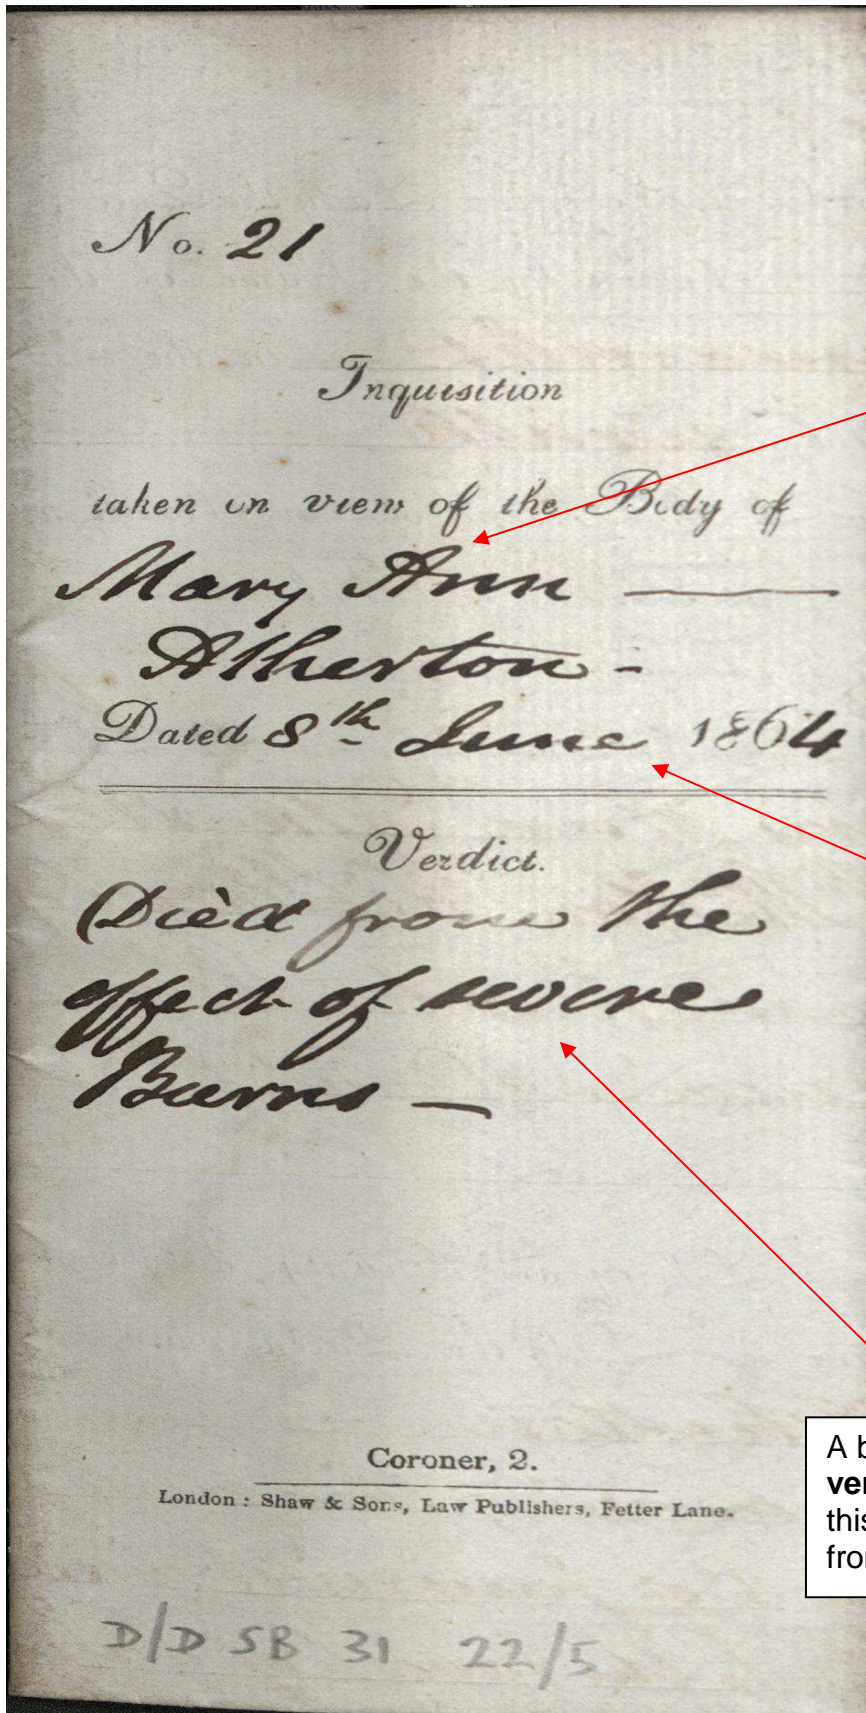 No. 21
Inquisition
taken on view of the Body of
Mary Ann —
Atherton -
Dated 8th June 1864
Verdict.
Died from the
effect of severe
Burns —
Coroner, 2.
London: Shaw & Sons, Law Publishers, Fetter Lane.
D/D SB 31 22/5
A b
ver
this
fro